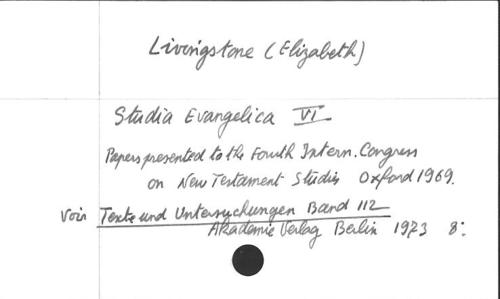 Livingstone (Elizabeth)
Studia Evangelica VI
Papers presented to the Fourth Intern. Congress
on New Testament Studies Oxford 1969.
Voir Texte und Untersuchungen Band 112
Akademie Verlag Berlin 1973 8: